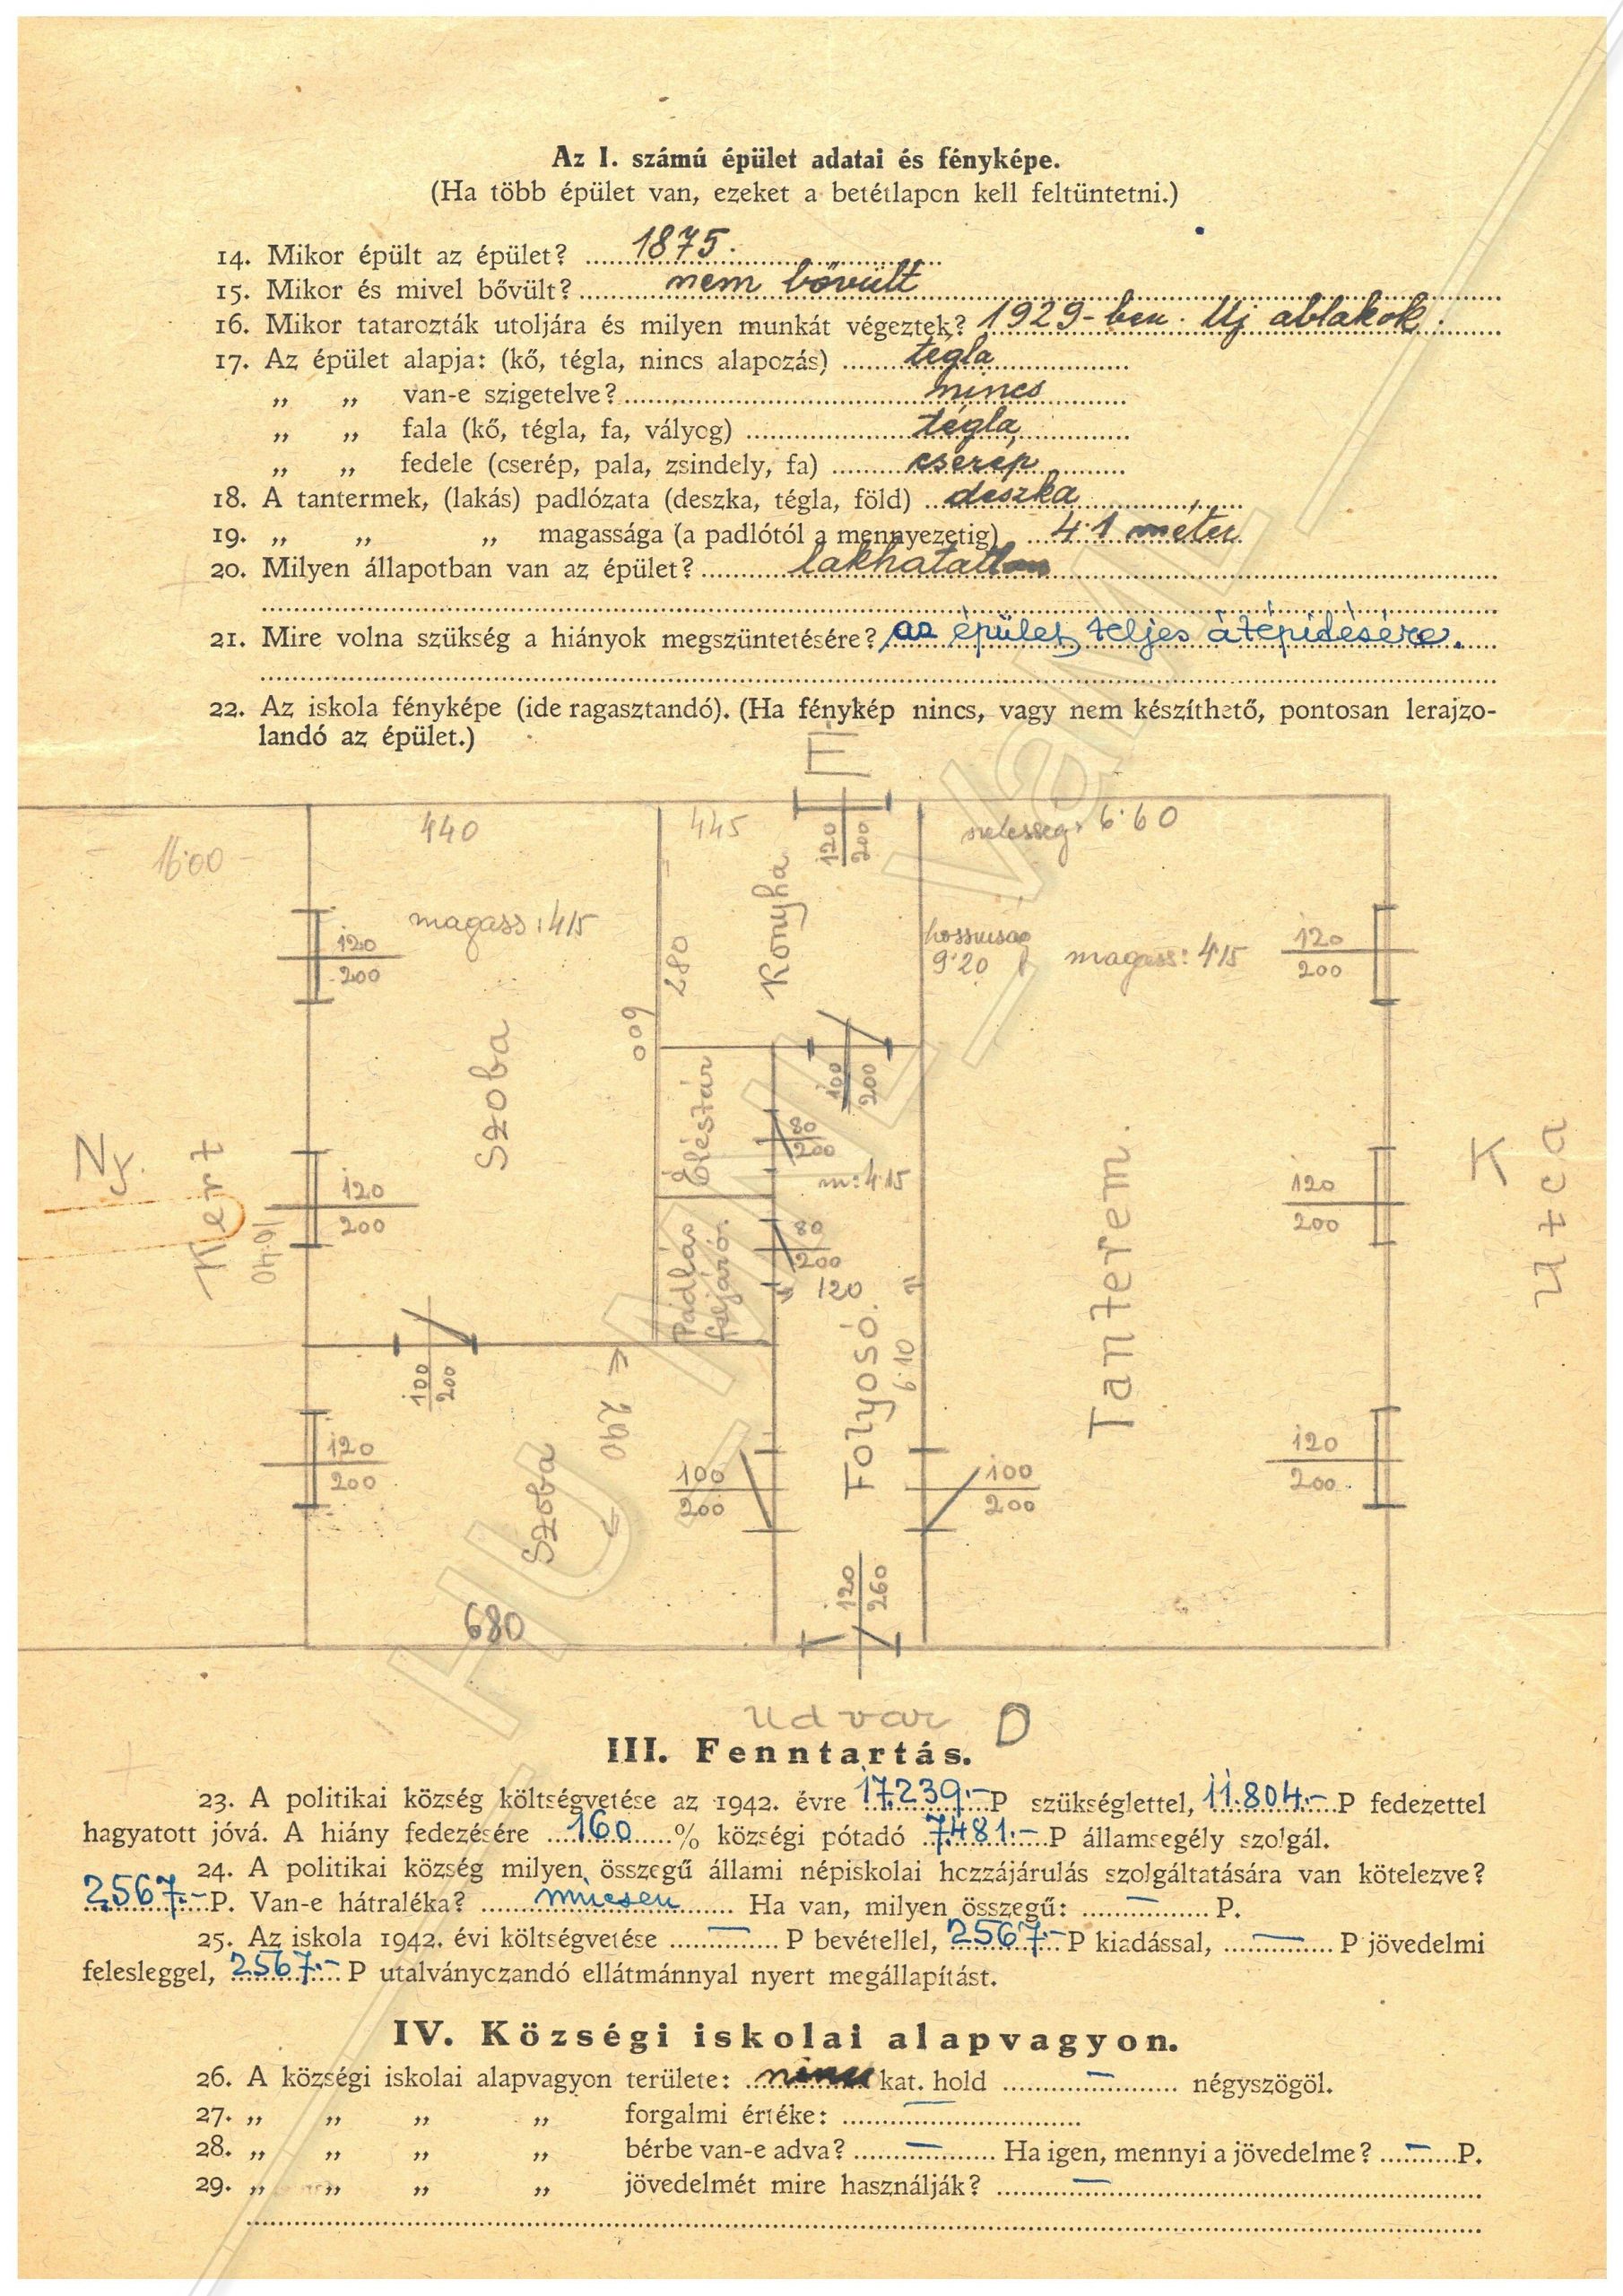 Az I. számú épület adatai és fényképe.
(Ha több épület van, ezeket a betétlapon kell feltüntetni.)
14. Mikor épült az épület? 1875.
15. Mikor és mivel bővült? nem bővült
16. Mikor tatarozták utoljára és milyen munkát végeztek? 1929-ben. Uj ablakok.
17. Az épület alapja: (kő, tégla, nincs alapozás) tégla
„ „ van-e szigetelve? nincs
„ „ fala (kő, tégla, fa, vályog) tégla
„ „ fedele (cserép, pala, zsindely, fa) cserép
18. A tantermek, (lakás) padlózata (deszka, tégla, föld) deszka
19. „ „ „ magassága (a padlótól a mennyezetig) 4·1 méter
20. Milyen állapotban van az épület? lakhatatlan
21. Mire volna szükség a hiányok megszüntetésére? az épület teljes átépidésére.
22. Az iskola fényképe (ide ragasztandó). (Ha fénykép nincs, vagy nem készíthető, pontosan lerajzo-
landó az épület.)
É
16·00
440
445
120
200
szélesség: 6·60
magass: 4·15
Konyha
280
600
hosszuság
9·20
magass: 4·15
120
200
120
200
Szoba
Éléstár
100
200
80
200
m: 4·15
Ny.
Kert
16·40
120
200
Padlás
feljáró.
80
200
120
Tanterem.
120
200
K
Utca
100
200
240
Folyosó.
6·10
120
200
Szoba
100
200
100
200
120
200
680
120
260
Udvar D
III. Fenntartás.
23. A politikai község költségvetése az 1942. évre 17.239·– P szükséglettel, 11.804·– P fedezettel
hagyatott jóvá. A hiány fedezésére 160 % községi pótadó 7481·– P államsegély szolgál.
24. A politikai község milyen összegű állami népiskolai hozzájárulás szolgáltatására van kötelezve?
2567·– P. Van-e hátraléka? nincsen Ha van, milyen összegű: — P.
25. Az iskola 1942. évi költségvetése — P bevétellel, 2567·– P kiadással, — P jövedelmi
felesleggel, 2567·– P utalványozandó ellátmánnyal nyert megállapítást.
IV. Községi iskolai alapvagyon.
26. A községi iskolai alapvagyon területe: nincs kat. hold — négyszögöl.
27. „ „ „ „ forgalmi értéke: —
28. „ „ „ „ bérbe van-e adva? — Ha igen, mennyi a jövedelme? — P.
29. „ „ „ „ jövedelmét mire használják? —
HU_MNL_VaML_